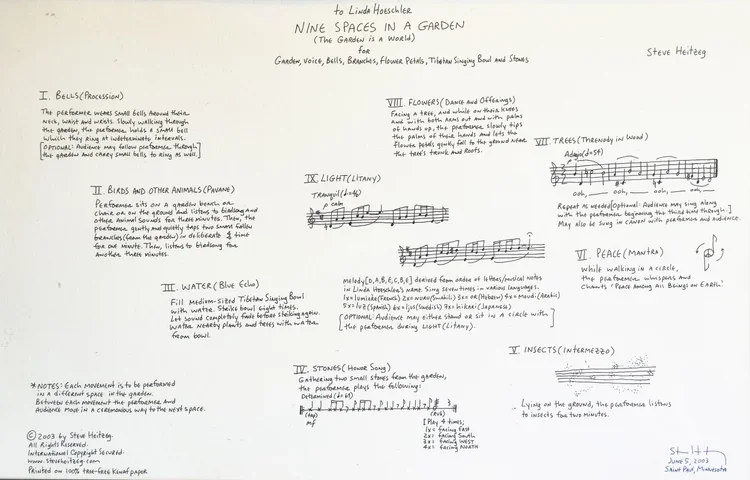 to Linda Hoeschler
NINE SPACES IN A GARDEN
(The Garden is a World)
for
Garden, Voice, Bells, Branches, Flower Petals, Tibetan Singing Bowl and Stones
Steve Heitzeg
I. Bells (Procession)
The performer wears small bells around their
neck, waist and wrists. Slowly walking through
the garden, the performer holds a small bell
which they ring at indeterminate intervals.
[OPTIONAL: Audience may follow performer through
the garden and carry small bells to ring as well.]
II. Birds and Other Animals (Pavane)
Performer sits on a garden bench or
chair or on the ground and listens to birdsong and
other animal sounds for three minutes. Then, the
performer gently and quietly taps two small fallen
branches (from the garden) in deliberate time
for one minute. Then, listens to birdsong for
another three minutes.
III. Water (Blue Echo)
Fill medium-sized Tibetan Singing Bowl
with water. Strike bowl eight times.
Let sound completely fade before striking again.
Water nearby plants and trees with water
from bowl.
IV. Stones (Honor Song)
Gathering two small stones from the garden,
the performer plays the following:
Determined (♩=69)
(tap)
mf
(rub)
[Play 4 times:
1x= facing East
2x= facing South
3x= facing West
4x= facing North
V. Insects (Intermezzo)
Lying on the ground, the performer listens
to insects for two minutes.
VI. Peace (Mantra)
While walking in a circle,
the performer whispers and
chants "Peace Among All Beings on Earth."
VII. Trees (Threnody in Wood)
Adagio (♩=54)
ooh, ooh, ooh, ooh,
Repeat as needed [Optional: Audience may sing along
with the performer beginning the third time through.]
May also be sung in canon with performer and audience.
VIII. Flowers (Dance and Offerings)
Facing a tree, and while on their knees
and with both arms out and with palms
of hands up, the performer slowly tips
the palms of their hands and lets the
flower petals gently fall to the ground near
the tree's trunk and roots.
IX. Light (Litany)
Tranquil
p calm
Melody [D, A, B, E, C, B, E] derived from order of letters/musical notes
in Linda Hoeschler's name. Sing seven times in various languages.
1x= lumière (French) 2x= nuru (Swahili) 3x= or (Hebrew)
5x= luz (Spanish) 6x= ljus (Swedish) 7x= hikari (Japanese)
[OPTIONAL: Audience may either stand or sit in a circle with
the performer during Light (Litany).]
*NOTES: Each movement is to be performed
in a different space in the garden.
Between each movement the performer and
audience move in a ceremonious way to the next space.
© 2003 by Steve Heitzeg.
All Rights Reserved.
International Copyright Secured.
www.steveheitzeg.com
Printed on 100% tree-free Kenaf paper
June 5, 2003
Saint Paul, Minnesota